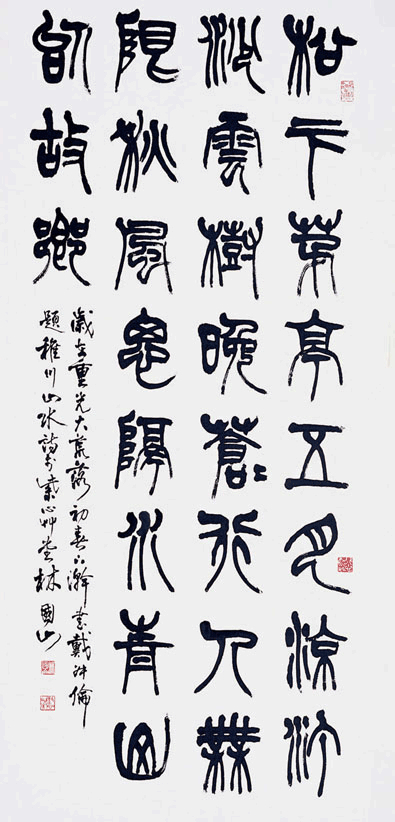 松下茅亭五月涼汀
沙雲樹晚蒼蒼行人無
限秋風思隔水青山
似故鄉
歲在重光大荒落初春上澣書戴叔倫
題稚川山水詩於紫心艸堂林國山